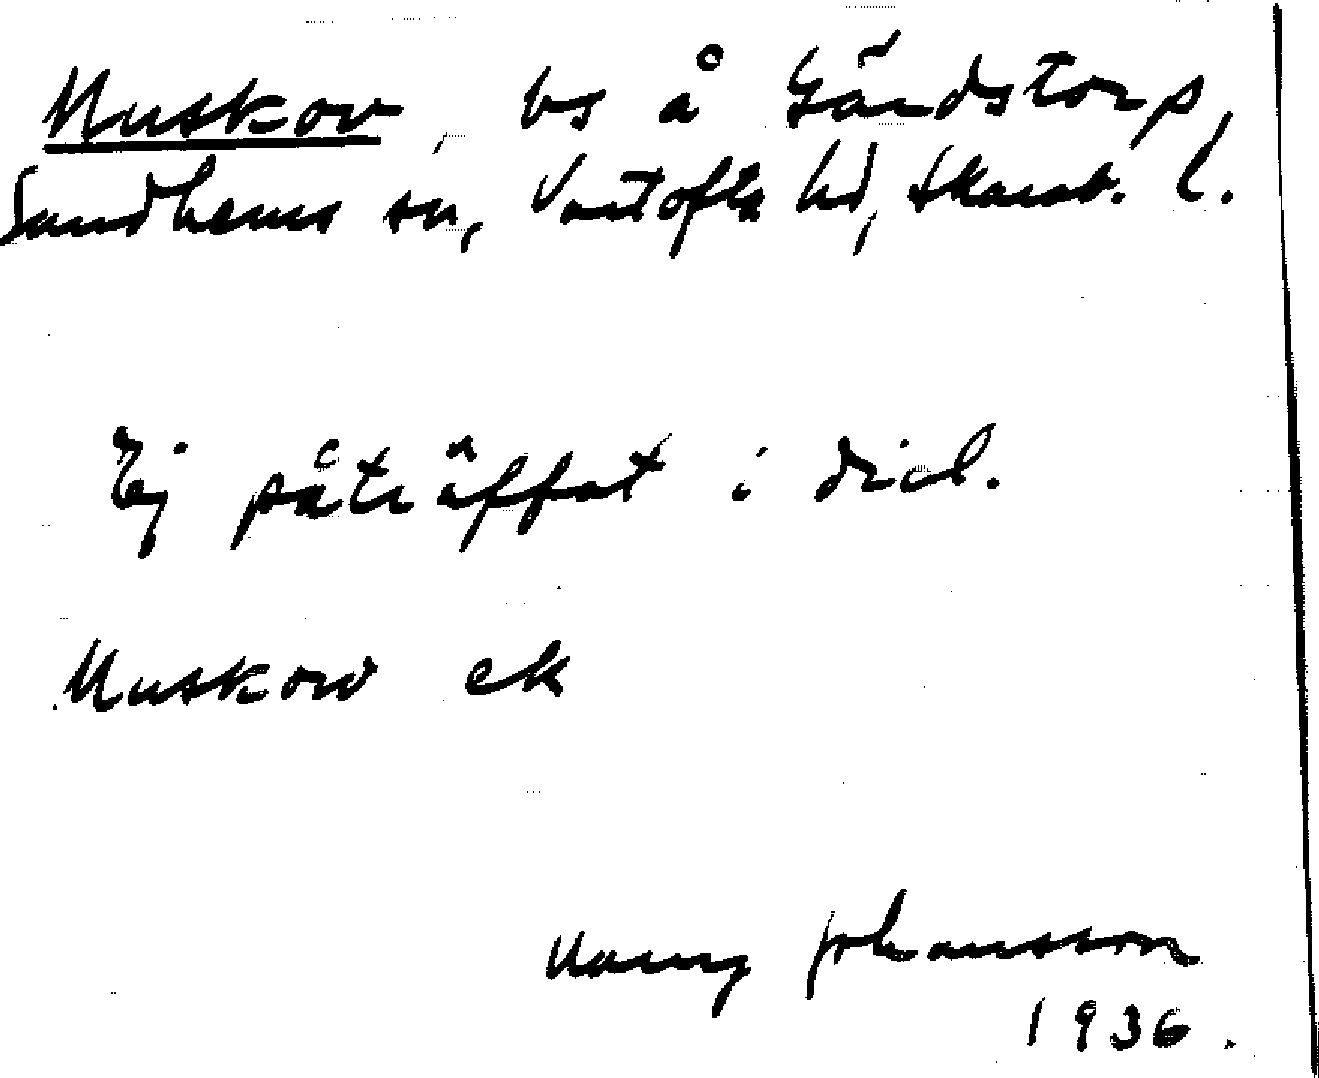 Muskov, bs å Gärdstorp,
Sandhems sn, Vartofta hd, Skarab. l.
Ej påträffat i dial.
Muskow ek
Nanny Johansson
1936.